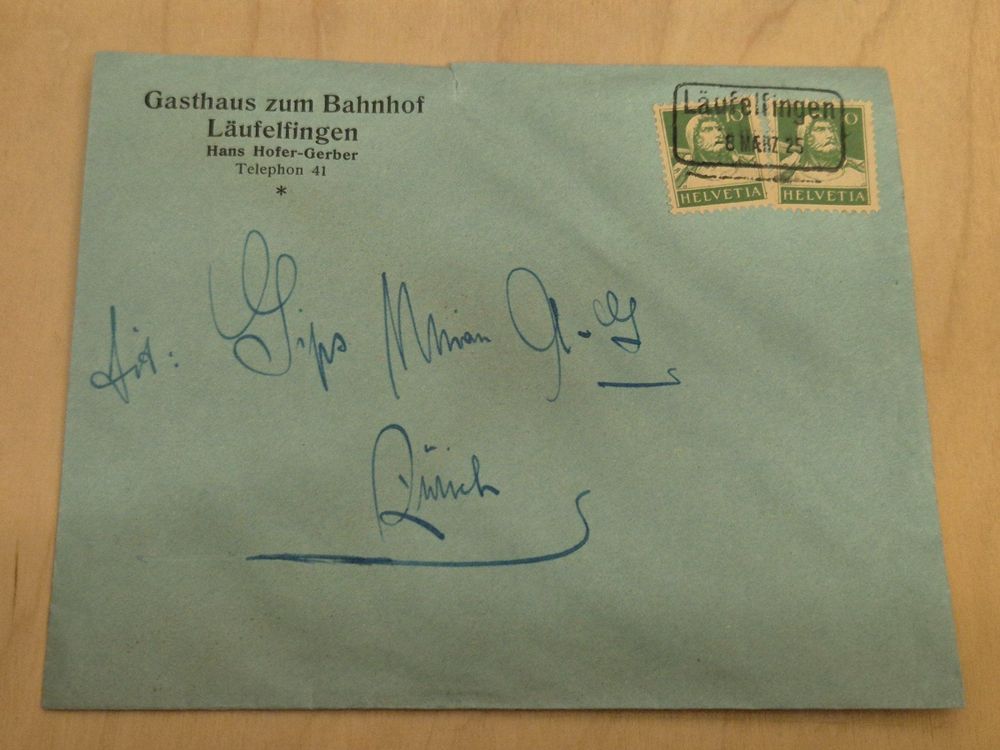 Gasthaus zum Bahnhof
Läufelfingen
Hans Hofer-Gerber
Telephon 41
*
Läufelfingen
-8 MÆRZ 25
10
HELVETIA
10
HELVETIA
Gips Union A-G
Zürich